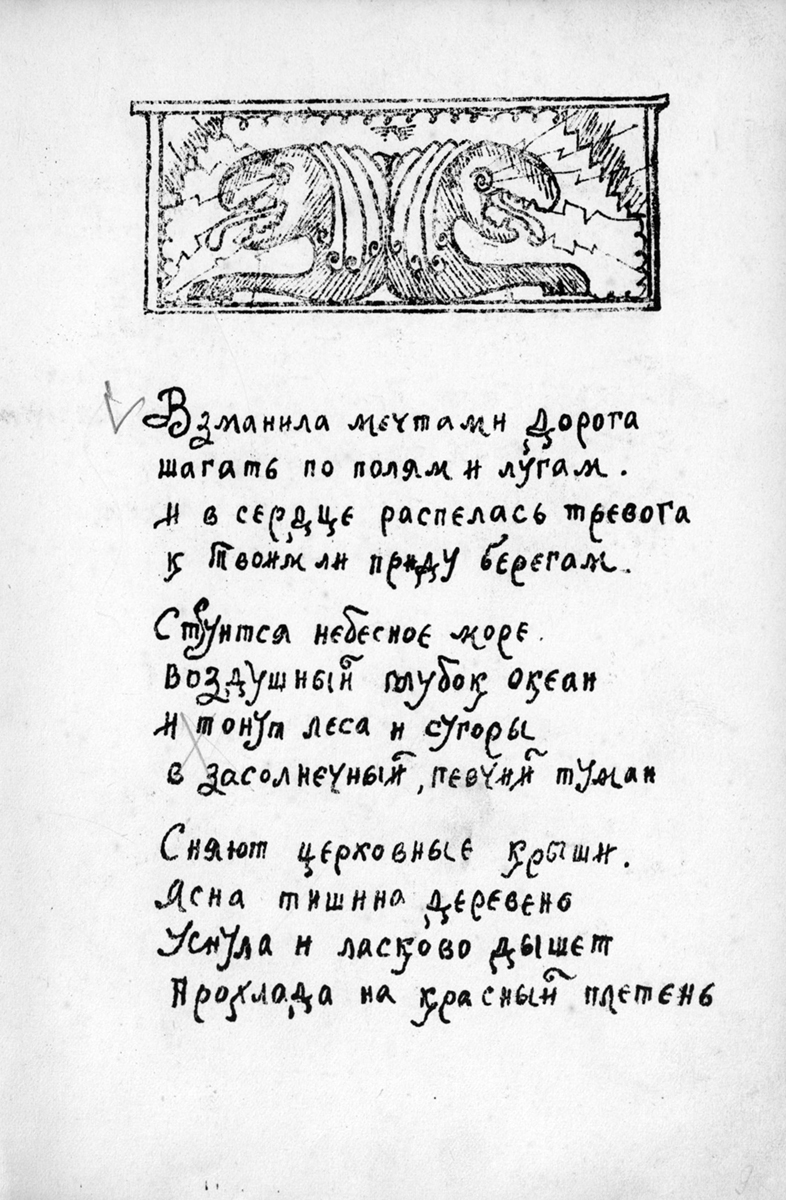 Взманила мечтами дорога
шагать по полям и лугам.
и в сердце распелась тревога
к твоим ли приду берегам.
Струится небесное море.
Воздушный глубок океан
и тонут леса и сугоры
в засолнечный, певчий туман
Сияют церковные крыши.
Ясна тишина деревень
Уснула и ласково дышет
Прохлада на красный плетень